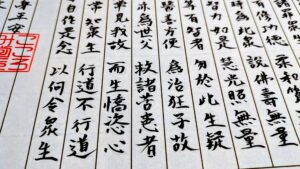 修功德 柔和
時為此衆 說佛壽無量
如是 慧光照無量
有智者 勿於此生疑
善方便 為治狂子故
亦為世父 救諸苦患者
常見我故 而生憍恣心
常知衆生 行道不行道
自作是念 以何令衆生